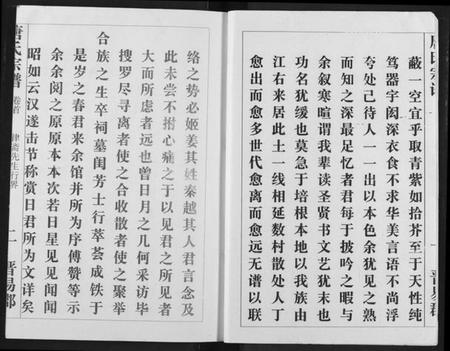 蔽一空宜乎取青紫如拾芥至于天性纯
笃器宇闳深衣食不求华美言语不尚浮
夸处己待人一一出以本色余犹见之熟
而知之深最足忆者君每于披吟之暇与
余叙寒暄谓我辈读圣贤书文艺犹末也
功名犹缓也莫急于培根本地以我族由
江右来居此土一线相延数村散处人丁
愈出而愈多世代愈离而愈远无谱以联
络之势必姬姜其姓秦越其人君言念及
此未尝不拊心痛之于以见君之所见者
大而所虑者远也曾日月之几何采访毕
搜罗尽寻离者使之合收散者使之聚举
合族之生卒祠墓闺芳士行荟萃成铁于
是岁之春君来余馆并所为序傅赞等示
余余阅之原原本本次若日星见见闻闻
昭如云汉遂击节称赏日君所为文详矣
唐氏宗谱
卷首
律斋先生行界
二
晋易郡